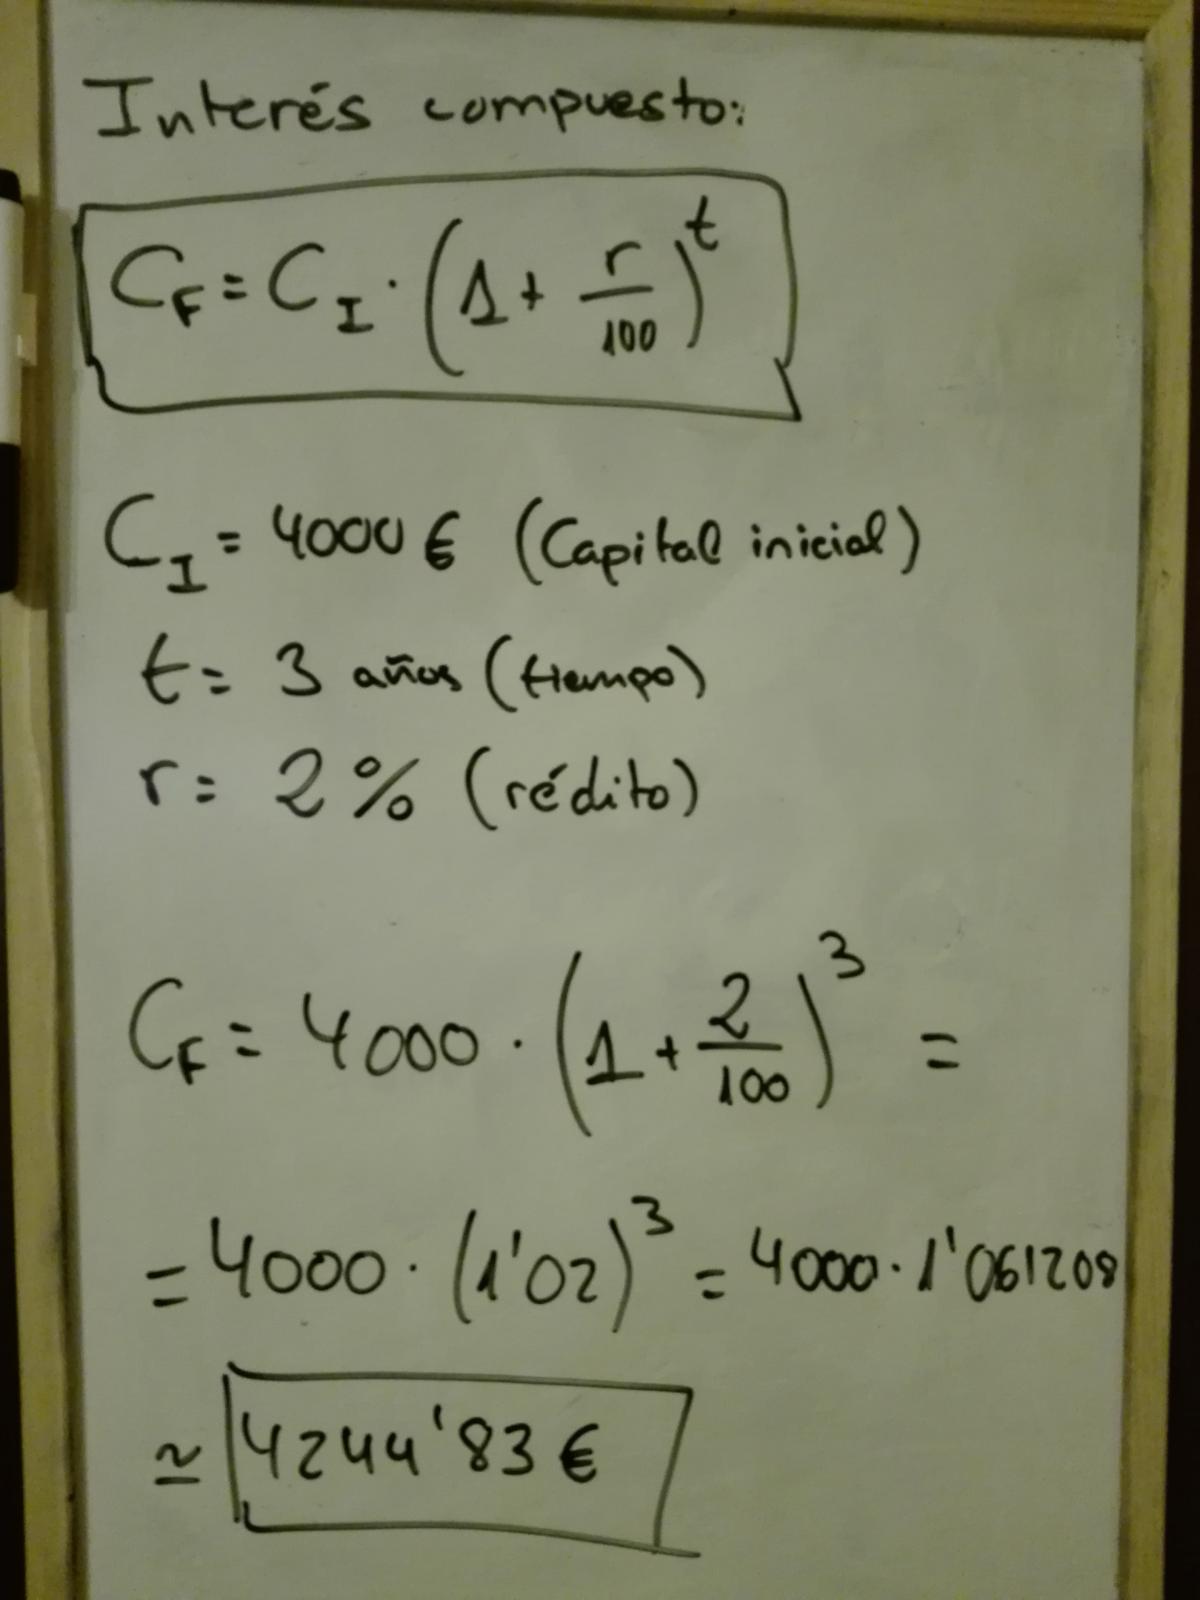 Interés compuesto:
C_F = C_I · (1 + r/100)^t
C_I = 4000 € (Capital inicial)
t = 3 años (tiempo)
r = 2 % (rédito)
C_F = 4000 · (1 + 2/100)^3 =
= 4000 · (1'02)^3 = 4000 · 1'061208
≃ 4244'83 €